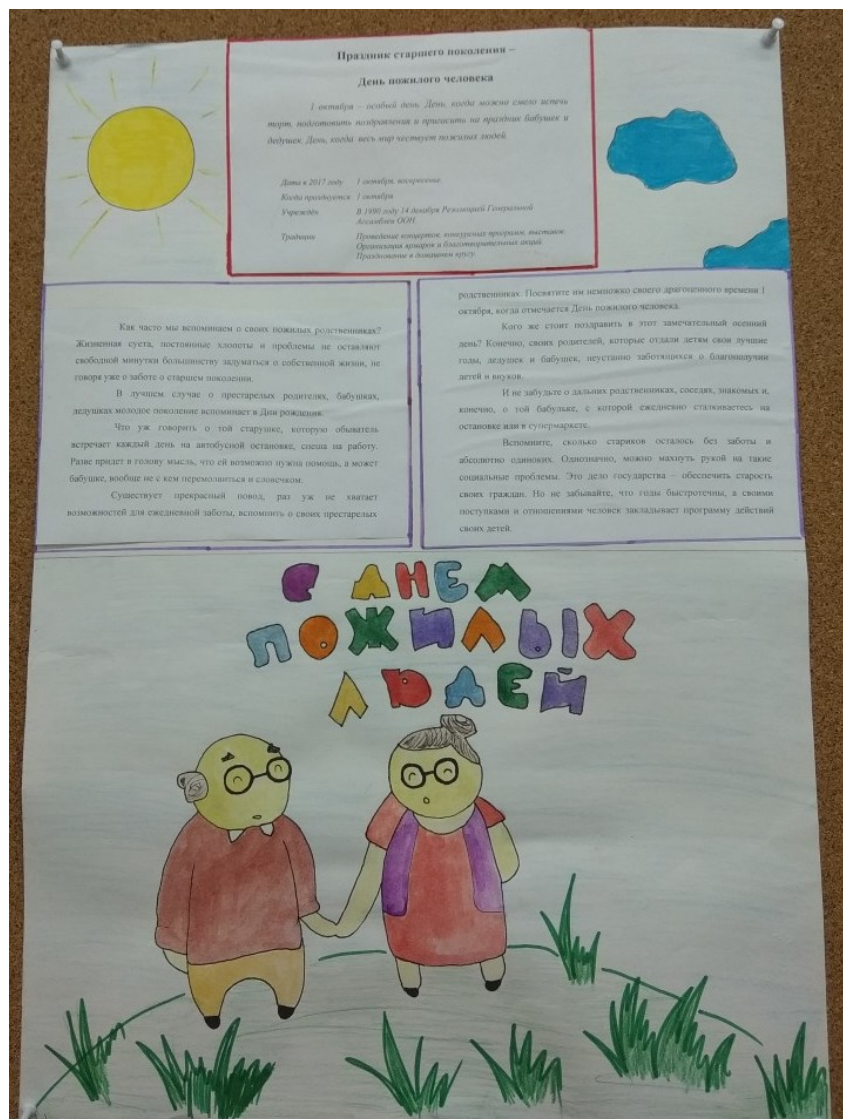 Праздник старшего поколения –
День пожилого человека
1 октября – особый день. День, когда можно смело испечь
торт, подготовить поздравления и пригласить на праздник бабушек и
дедушек. День, когда весь мир чествует пожилых людей.
Дата в 2017 году 1 октября, воскресенье.
Когда празднуется 1 октября
Учреждён В 1990 году 14 декабря Резолюцией Генеральной
Ассамблеи ООН.
Традиции Проведение концертов, конкурсных программ, выставок.
Организация ярмарок и благотворительных акций.
Празднование в домашнем кругу.
Как часто мы вспоминаем о своих пожилых родственниках?
Жизненная суета, постоянные хлопоты и проблемы не оставляют
свободной минутки большинству задуматься о собственной жизни, не
говоря уже о заботе о старшем поколении.
В лучшем случае о престарелых родителях, бабушках,
дедушках молодое поколение вспоминает в Дни рождения.
Что уж говорить о той старушке, которую обыватель
встречает каждый день на автобусной остановке, спеша на работу.
Разве придет в голову мысль, что ей возможно нужна помощь, а может
бабушке, вообще не с кем перемолвиться и словечком.
Существует прекрасный повод, раз уж не хватает
возможностей для ежедневной заботы, вспомнить о своих престарелых
родственниках. Посвятите им немножко своего драгоценного времени 1
октября, когда отмечается День пожилого человека.
Кого же стоит поздравить в этот замечательный осенний
день? Конечно, своих родителей, которые отдали детям свои лучшие
годы, дедушек и бабушек, неустанно заботящихся о благополучии
детей и внуков.
И не забудьте о дальних родственниках, соседях, знакомых и,
конечно, о той бабульке, с которой ежедневно сталкиваетесь на
остановке или в супермаркете.
Вспомните, сколько стариков осталось без заботы и
абсолютно одиноких. Однозначно, можно махнуть рукой на такие
социальные проблемы. Это дело государства – обеспечить старость
своих граждан. Но не забывайте, что годы быстротечны, а своими
поступками и отношениями человек закладывает программу действий
своих детей.
С ДНЕМ
ПОЖИЛЫХ
ЛЮДЕЙ